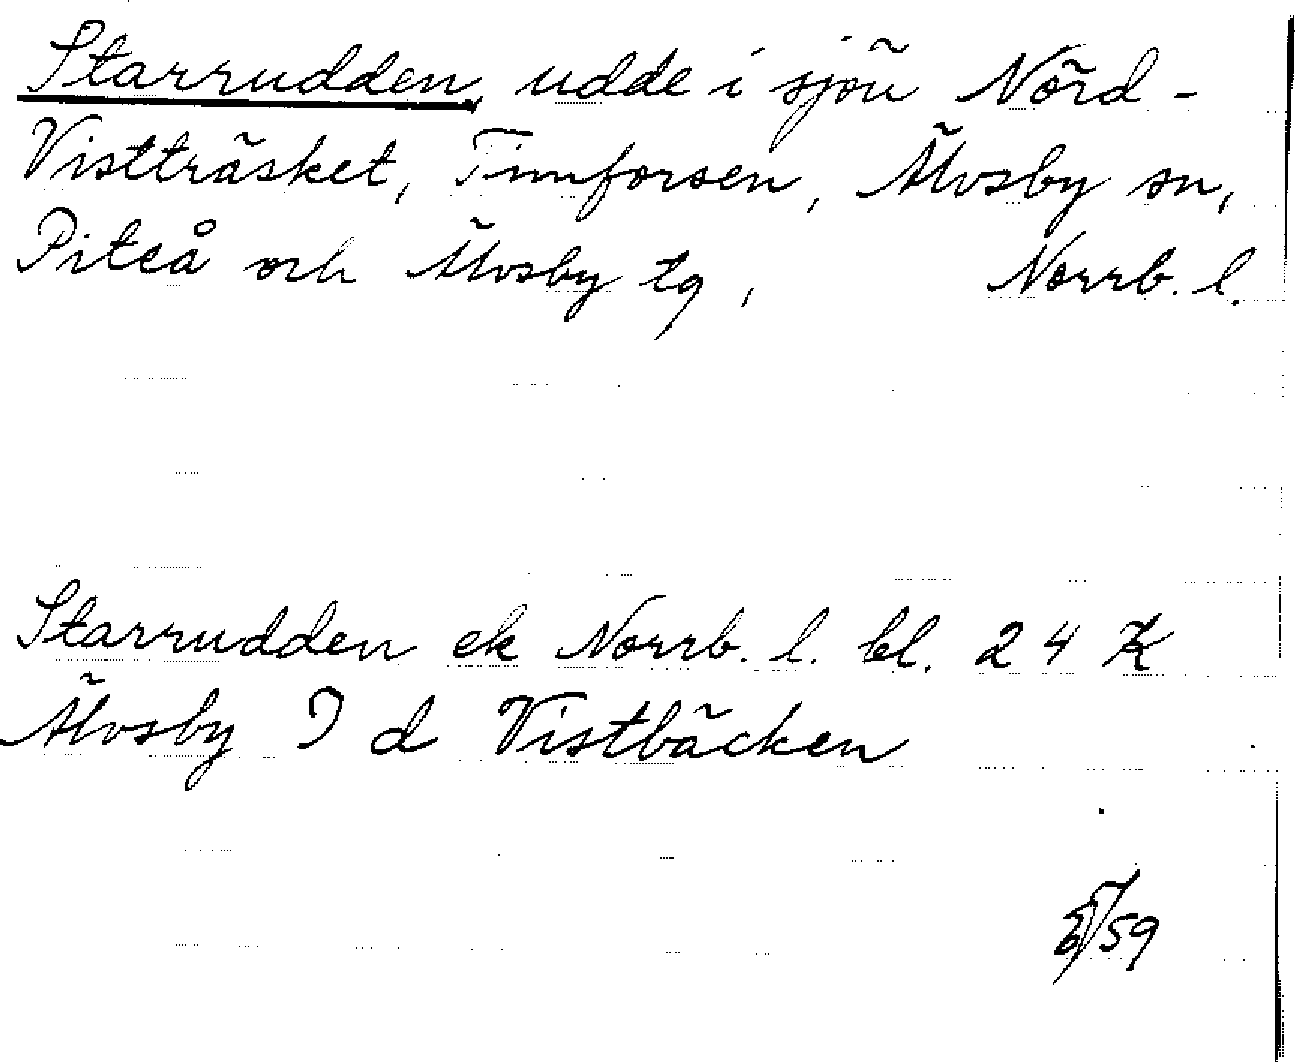 Starrudden, udde i sjön Nörd-
Vistträsket, Finnforsen, Älvsby sn,
Piteå och Älvsby tg, Norrb. l.
Starrudden ek Norrb. l. bl. 24 K
Älvsby I d Vistbäcken